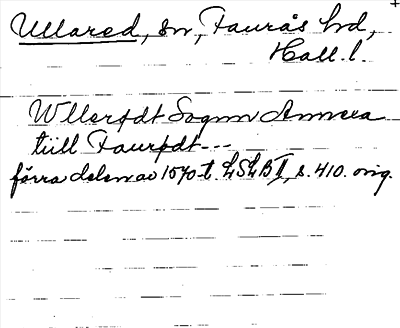 Ullared, sn, Faurås hd,
Hall. l.
Wllerødt Sognn Annexa
tiill Faurødt---
förra delen av 1570-t. LSLB II, s. 410. orig.